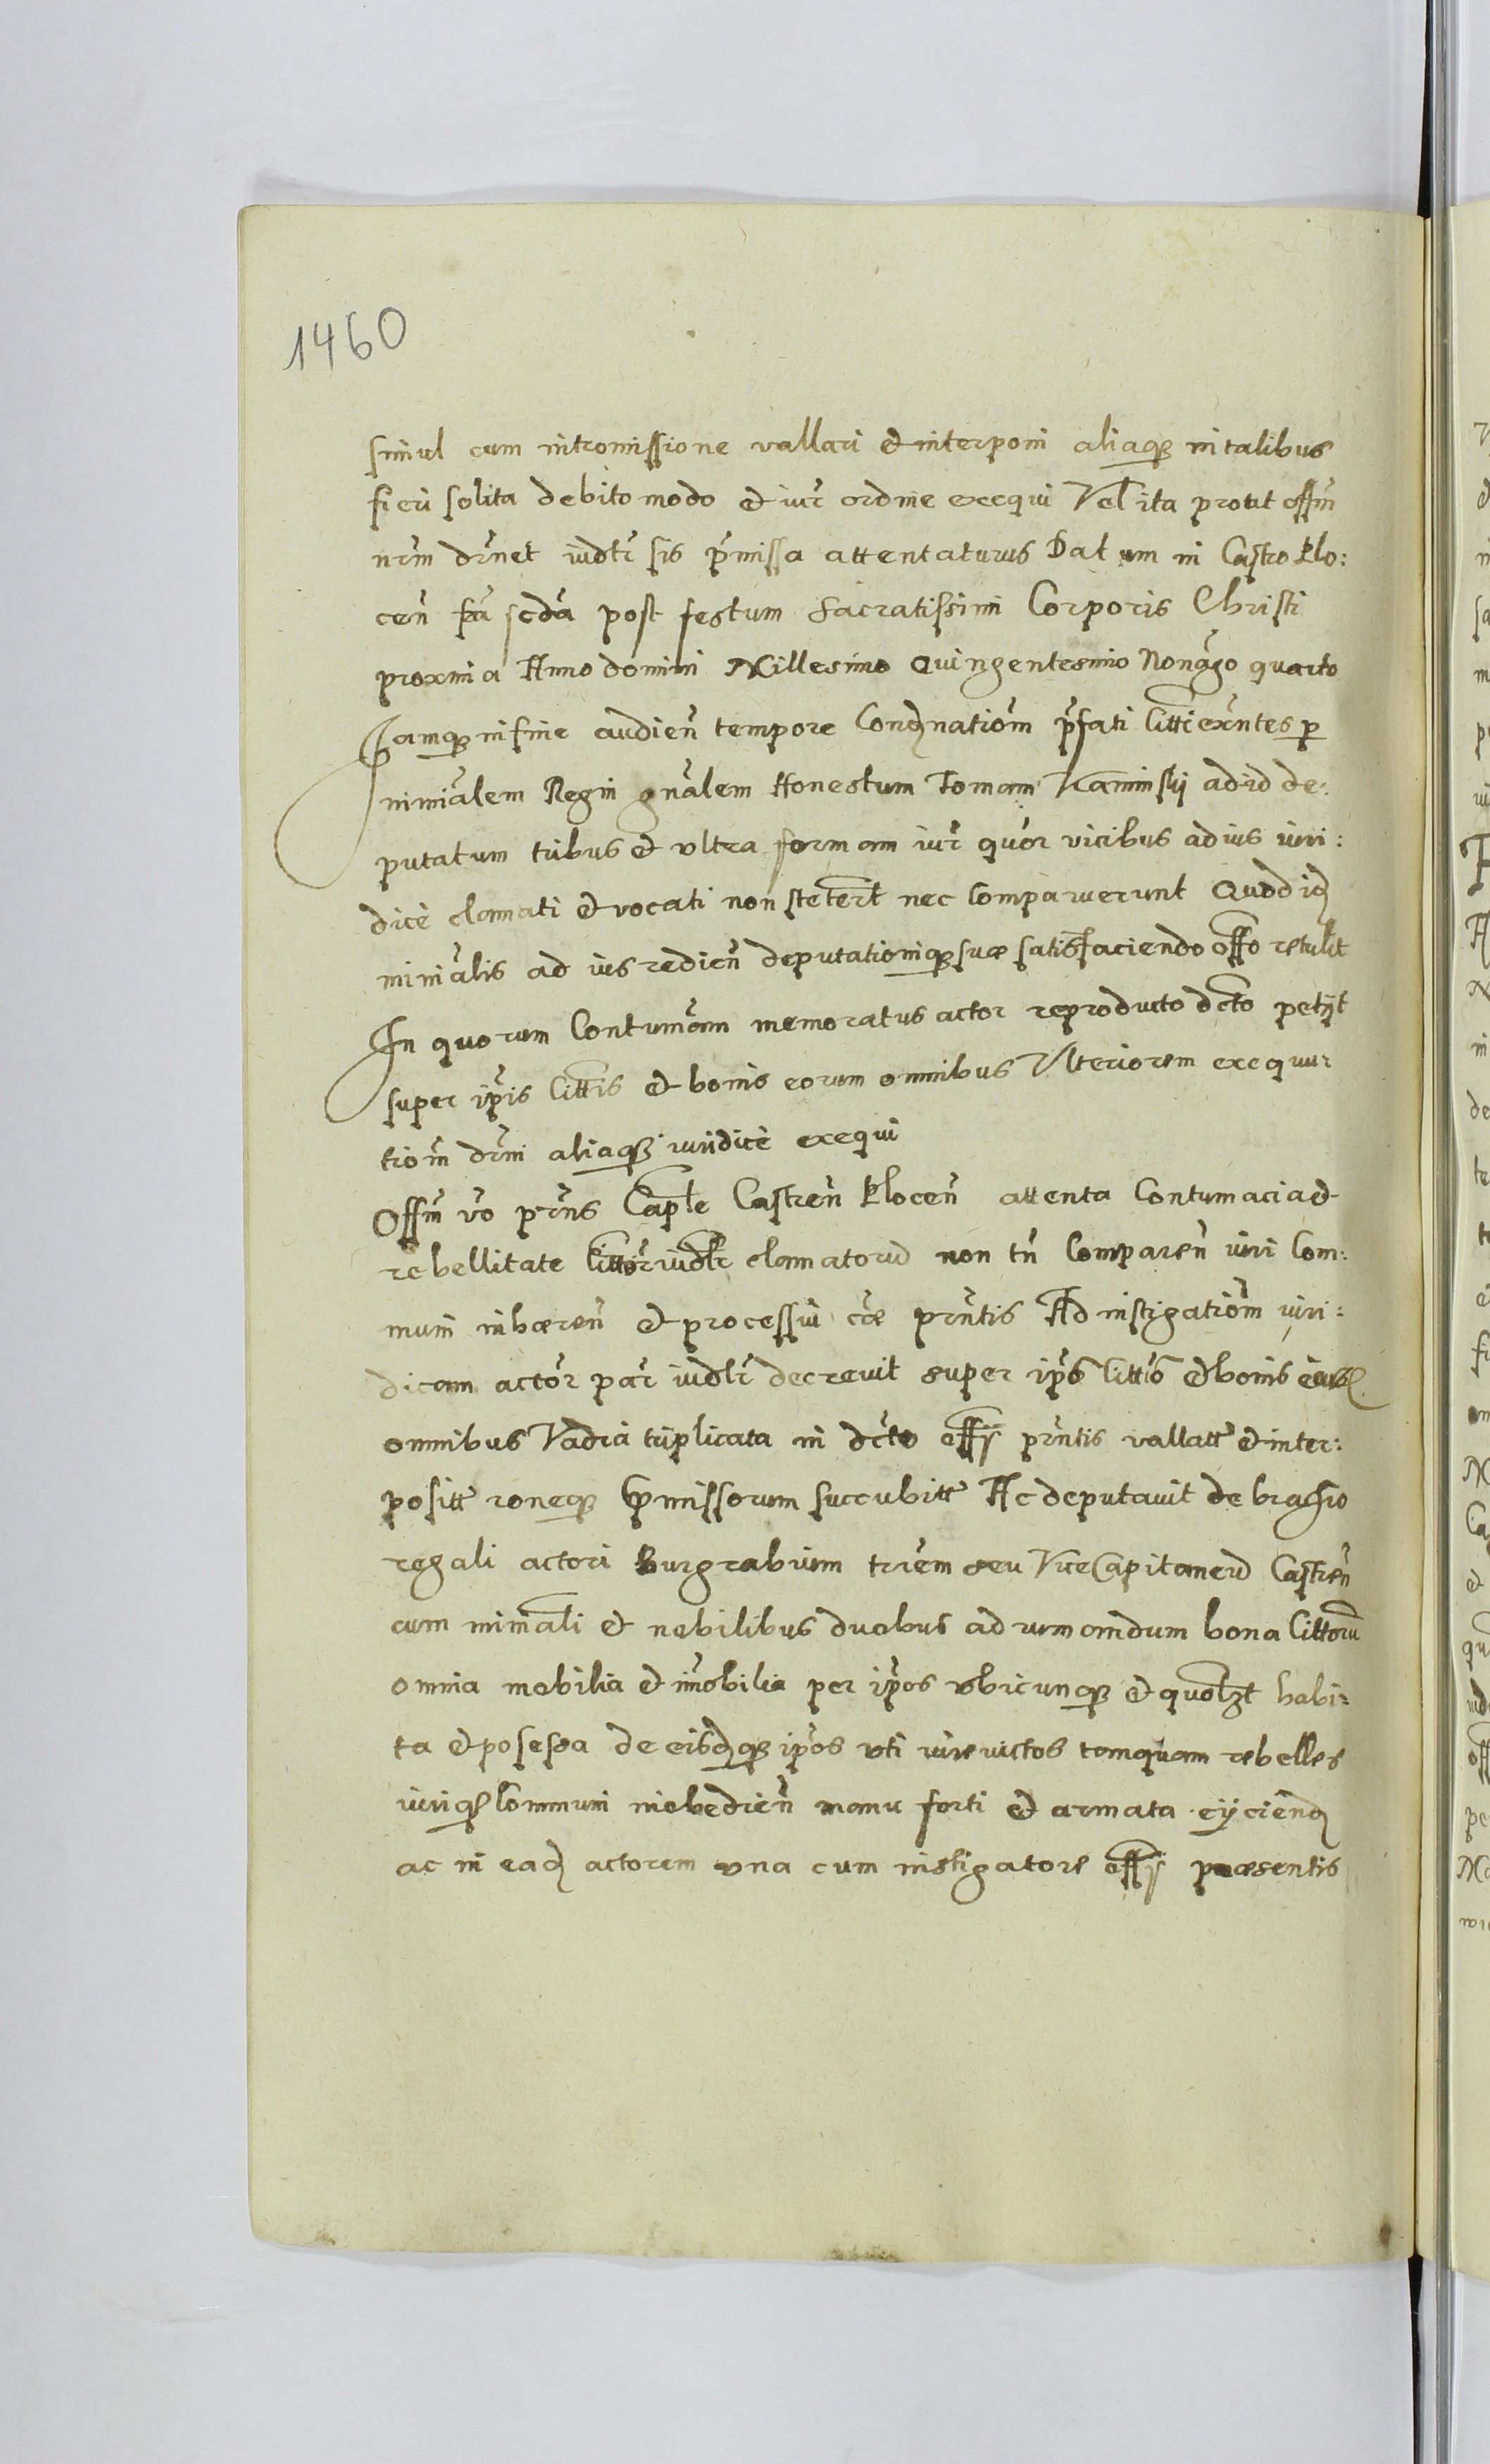 1460
simul cum intromissione vallari et interponi aliaq3 in talibus
fieri solita debito modo et iur̃ ordine exequi Vel ita prout offm̃
nrm̃ dr̃net iudtr̃ sis pr̃missa attentaturus Datum in Castro Plo:
cen̄ fr̃a scda post festum sacratissimi Corporis Christi
proxima Anno domini Millesimo Quingentesimo Nonag̃o quarto
Jamq3 in fine audien̄ tempore Condnatiom̃ pr̃fati Citti exr̃ntes p
minr̃alem Regni gnãlem Honestum Tomam Kaminsky ad id de:
putatum tribus et vltra formam iur̃ quor̃ vicibus ad ius iuri:
dicè clamati et vocati non steter̃t nec Comparuerunt Quod id
minr̃alis ad ius redien̄ deputationiq3 suæ satisfaciendo offo retulit
In quorum Contumãam memoratus actor reproducto dcto petijt
super ipĩs Cittis et bonis eorum omnibus Vlteriorem exequu-
tiom̃ dr̃ni aliaq3 iuridicè exequi
Offm̃ vo pr̃ns Caple Castren̄ Plocen̄ attenta Contumacia et
rebellitate Cittor̃ iudtr̃ clamatorū non tñ Comparen̄ iuri Com:
muni inhæren̄ et processui cæ pr̃ntis Ad instigatiom̃ iuri:
dicam actor̃ par̃ iudtr̃ decrevit super ipõs Cittõ et bonis eius
omnibus Vadia triplicata in dcto offij pr̃ntis vallatt et inter:
positt roneq3 pr̃missorum succubitt Ac deputauit de brachio
regali actori Burgrabium trr̃em seu ViceCapitaneū Castren̄
cum minr̃ali et nobilibus duobus ad rumandum bona Cittorũ
omnia mobilia et im̃obilia per ipõs vbicunq3 et quolzt habi-
ta et posessa de eisdq3 ipõs vti iure victos tamquam rebelles
iuriq3 Communi inobedien̄ manu forti et armata eijciend
ac in ead actorem vna cum instigatore offij præsentis